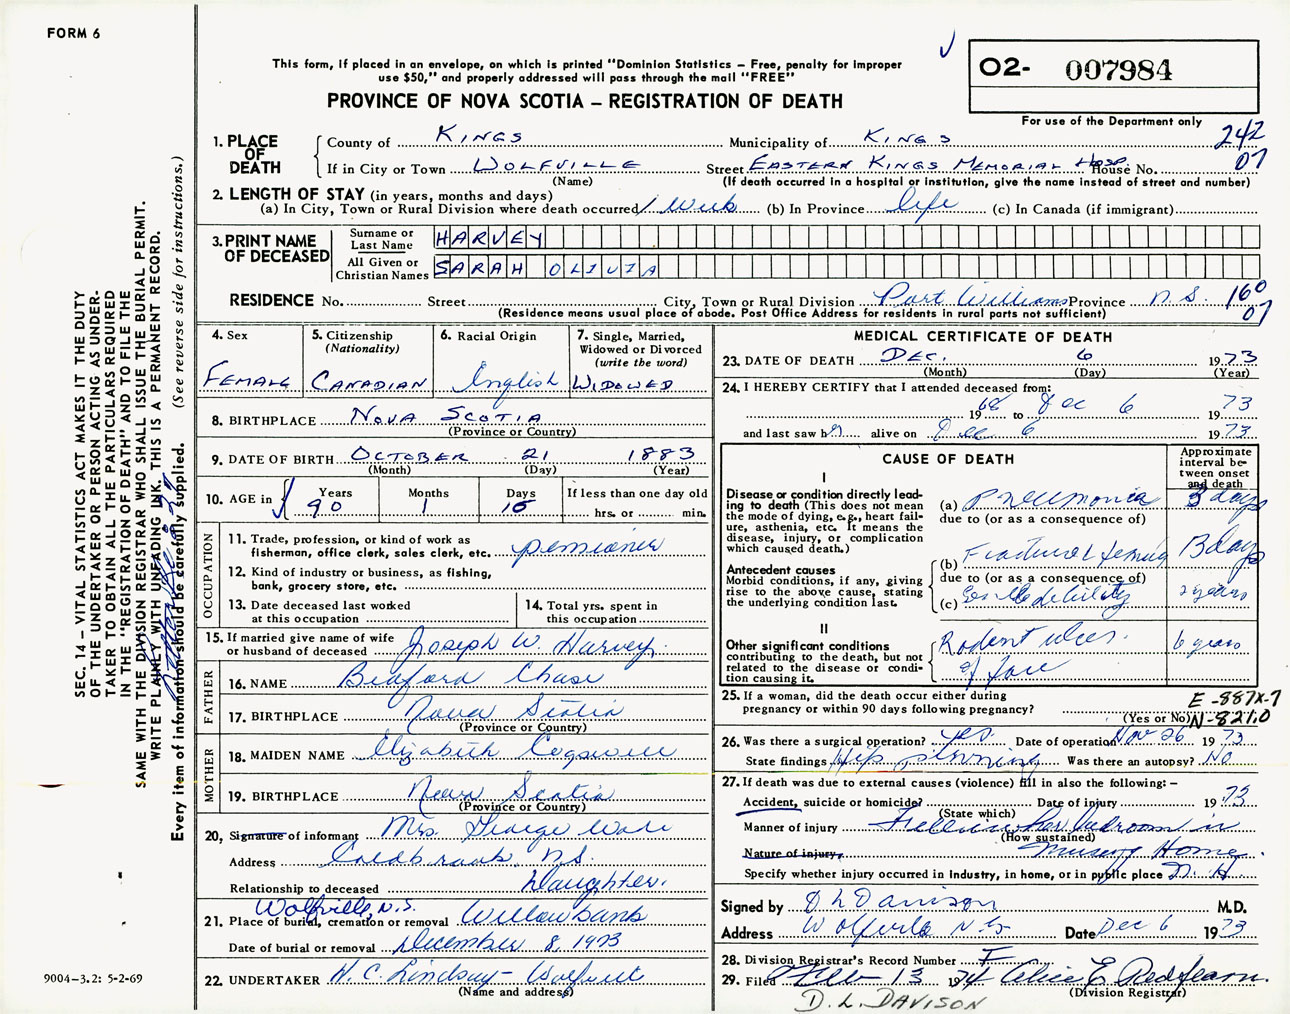 FORM 6
This form, if placed in an envelope, on which is printed "Dominion Statistics – Free, penalty for improper
use $50," and properly addressed will pass through the mail "FREE"
PROVINCE OF NOVA SCOTIA – REGISTRATION OF DEATH
02- 007984
For use of the Department only
242
07
1. PLACE OF DEATH
County of KINGS Municipality of KINGS
If in City or Town WOLFVILLE Street EASTERN KINGS MEMORIAL HOSP. House No.
(Name) (If death occurred in a hospital or institution, give the name instead of street and number)
2. LENGTH OF STAY (in years, months and days)
(a) In City, Town or Rural Division where death occurred 1 week (b) In Province life (c) In Canada (if immigrant)
3. PRINT NAME OF DECEASED
Surname or Last Name HARVEY
All Given or Christian Names SARAH OLIVIA
RESIDENCE No. Street City, Town or Rural Division Port Williams Province N.S. 160
07
(Residence means usual place of abode. Post Office Address for residents in rural parts not sufficient)
4. Sex FEMALE
5. Citizenship (Nationality) CANADIAN
6. Racial Origin English
7. Single, Married, Widowed or Divorced (write the word) WIDOWED
8. BIRTHPLACE NOVA SCOTIA
(Province or Country)
9. DATE OF BIRTH OCTOBER 21 1883
(Month) (Day) (Year)
10. AGE in Years 90 Months 1 Days 15 If less than one day old
hrs. or min.
OCCUPATION
11. Trade, profession, or kind of work as
fisherman, office clerk, sales clerk, etc. pensioner
12. Kind of industry or business, as fishing,
bank, grocery store, etc.
13. Date deceased last worked
at this occupation
14. Total yrs. spent in
this occupation
15. If married give name of wife
or husband of deceased Joseph W. Harvey
FATHER
16. NAME Bedford Chase
17. BIRTHPLACE Nova Scotia
(Province or Country)
MOTHER
18. MAIDEN NAME Elizabeth Cogswell
19. BIRTHPLACE Nova Scotia
(Province or Country)
20. Signature of informant Mrs. George
Address Coldbrook N.S.
Relationship to deceased Daughter.
Wolfville, N.S.
21. Place of burial, cremation or removal Willowbank
Date of burial or removal December 8, 1973
22. UNDERTAKER H. C. Lindsay – Wolfville
(Name and address)
MEDICAL CERTIFICATE OF DEATH
23. DATE OF DEATH DEC. 6 1973
(Month) (Day) (Year)
24. I HEREBY CERTIFY that I attended deceased from:
1968 to Dec 6 1973
and last saw her alive on Dec 6 1973
CAUSE OF DEATH
Approximate interval between onset and death
I
Disease or condition directly leading to death (This does not
mean the mode of dying, e.g., heart failure, asthenia, etc. It means the
disease, injury, or complication
which caused death.)
(a) Pneumonia 3 days
due to (or as a consequence of)
(b) Fractured femur 13 days
Antecedent causes
Morbid conditions, if any, giving
rise to the above cause, stating
the underlying condition last.
due to (or as a consequence of)
(c) Senile debility 2 years
II
Other significant conditions
contributing to the death, but not
related to the disease or condition
causing it.
Rodent ulcer 6 years
of face
25. If a woman, did the death occur either during
pregnancy or within 90 days following pregnancy?
(Yes or No)
E-887X-7
N-821.0
26. Was there a surgical operation? yes Date of operation Nov 26 1973
State findings Hip pinning Was there an autopsy? No
27. If death was due to external causes (violence) fill in also the following:–
Accident, suicide or homicide? Date of injury 1973
(State which)
Manner of injury Fell in her bedroom in
(How sustained)
Nature of injury Nursing Home.
Specify whether injury occurred in industry, in home, or in public place N. H.
Signed by D L Davison M.D.
Address Wolfville N S Date Dec 6 1973
28. Division Registrar's Record Number F
29. Filed Feb 13 1974 Alice E. Redfearn
(Division Registrar)
D. L. DAVISON
SEC. 14 – VITAL STATISTICS ACT MAKES IT THE DUTY
OF THE UNDERTAKER OR PERSON ACTING AS UNDER-
TAKER TO OBTAIN ALL THE PARTICULARS REQUIRED
IN THE "REGISTRATION OF DEATH" AND TO FILE THE
SAME WITH THE DIVISION REGISTRAR WHO SHALL ISSUE THE BURIAL PERMIT.
WRITE PLAINLY WITH UNFADING INK. THIS IS A PERMANENT RECORD.
Every item of information should be carefully supplied. (See reverse side for instructions.)
9004–3.2: 5-2-69